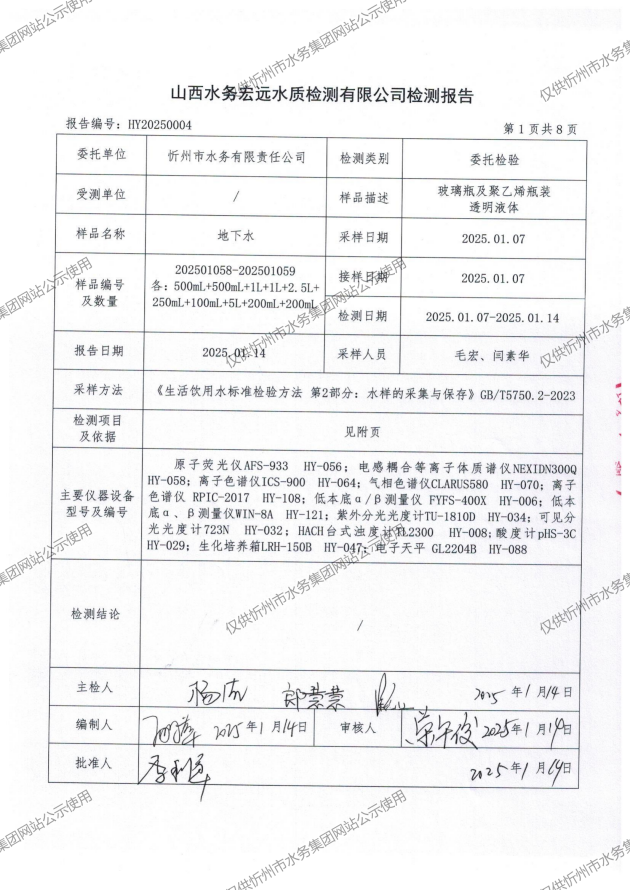 山西水务宏远水质检测有限公司检测报告
报告编号：HY20250004
第 1 页共 8 页
委托单位 忻州市水务有限责任公司 检测类别 委托检验
受测单位 / 样品描述 玻璃瓶及聚乙烯瓶装
透明液体
样品名称 地下水 采样日期 2025.01.07
样品编号
及数量
202501058-202501059
各：500mL+500mL+1L+1L+2.5L+
250mL+100mL+5L+200mL+200mL
接样日期 2025.01.07
检测日期 2025.01.07-2025.01.14
报告日期 2025.01.14 采样人员 毛宏、闫素华
采样方法 《生活饮用水标准检验方法 第2部分：水样的采集与保存》GB/T5750.2-2023
检测项目
及依据
见附页
主要仪器设备
型号及编号
原子荧光仪AFS-933 HY-056；电感耦合等离子体质谱仪NEXIDN300Q
HY-058；离子色谱仪ICS-900 HY-064；气相色谱仪CLARUS580 HY-070；离子
色谱仪 RPIC-2017 HY-108；低本底α/β测量仪 FYFS-400X HY-006；低本
底α、β测量仪WIN-8A HY-121；紫外分光光度计TU-1810D HY-034；可见分
光光度计723N HY-032；HACH台式浊度计TL2300 HY-008；酸度计pHS-3C
HY-029；生化培养箱LRH-150B HY-047；电子天平 GL2204B HY-088
检测结论 /
主检人 2025 年 1 月 14 日
编制人 2025 年 1 月 14 日 审核人 2025 年 1 月 14 日
批准人 2025 年 1 月 14 日
仅供忻州市水务集团网站公示使用